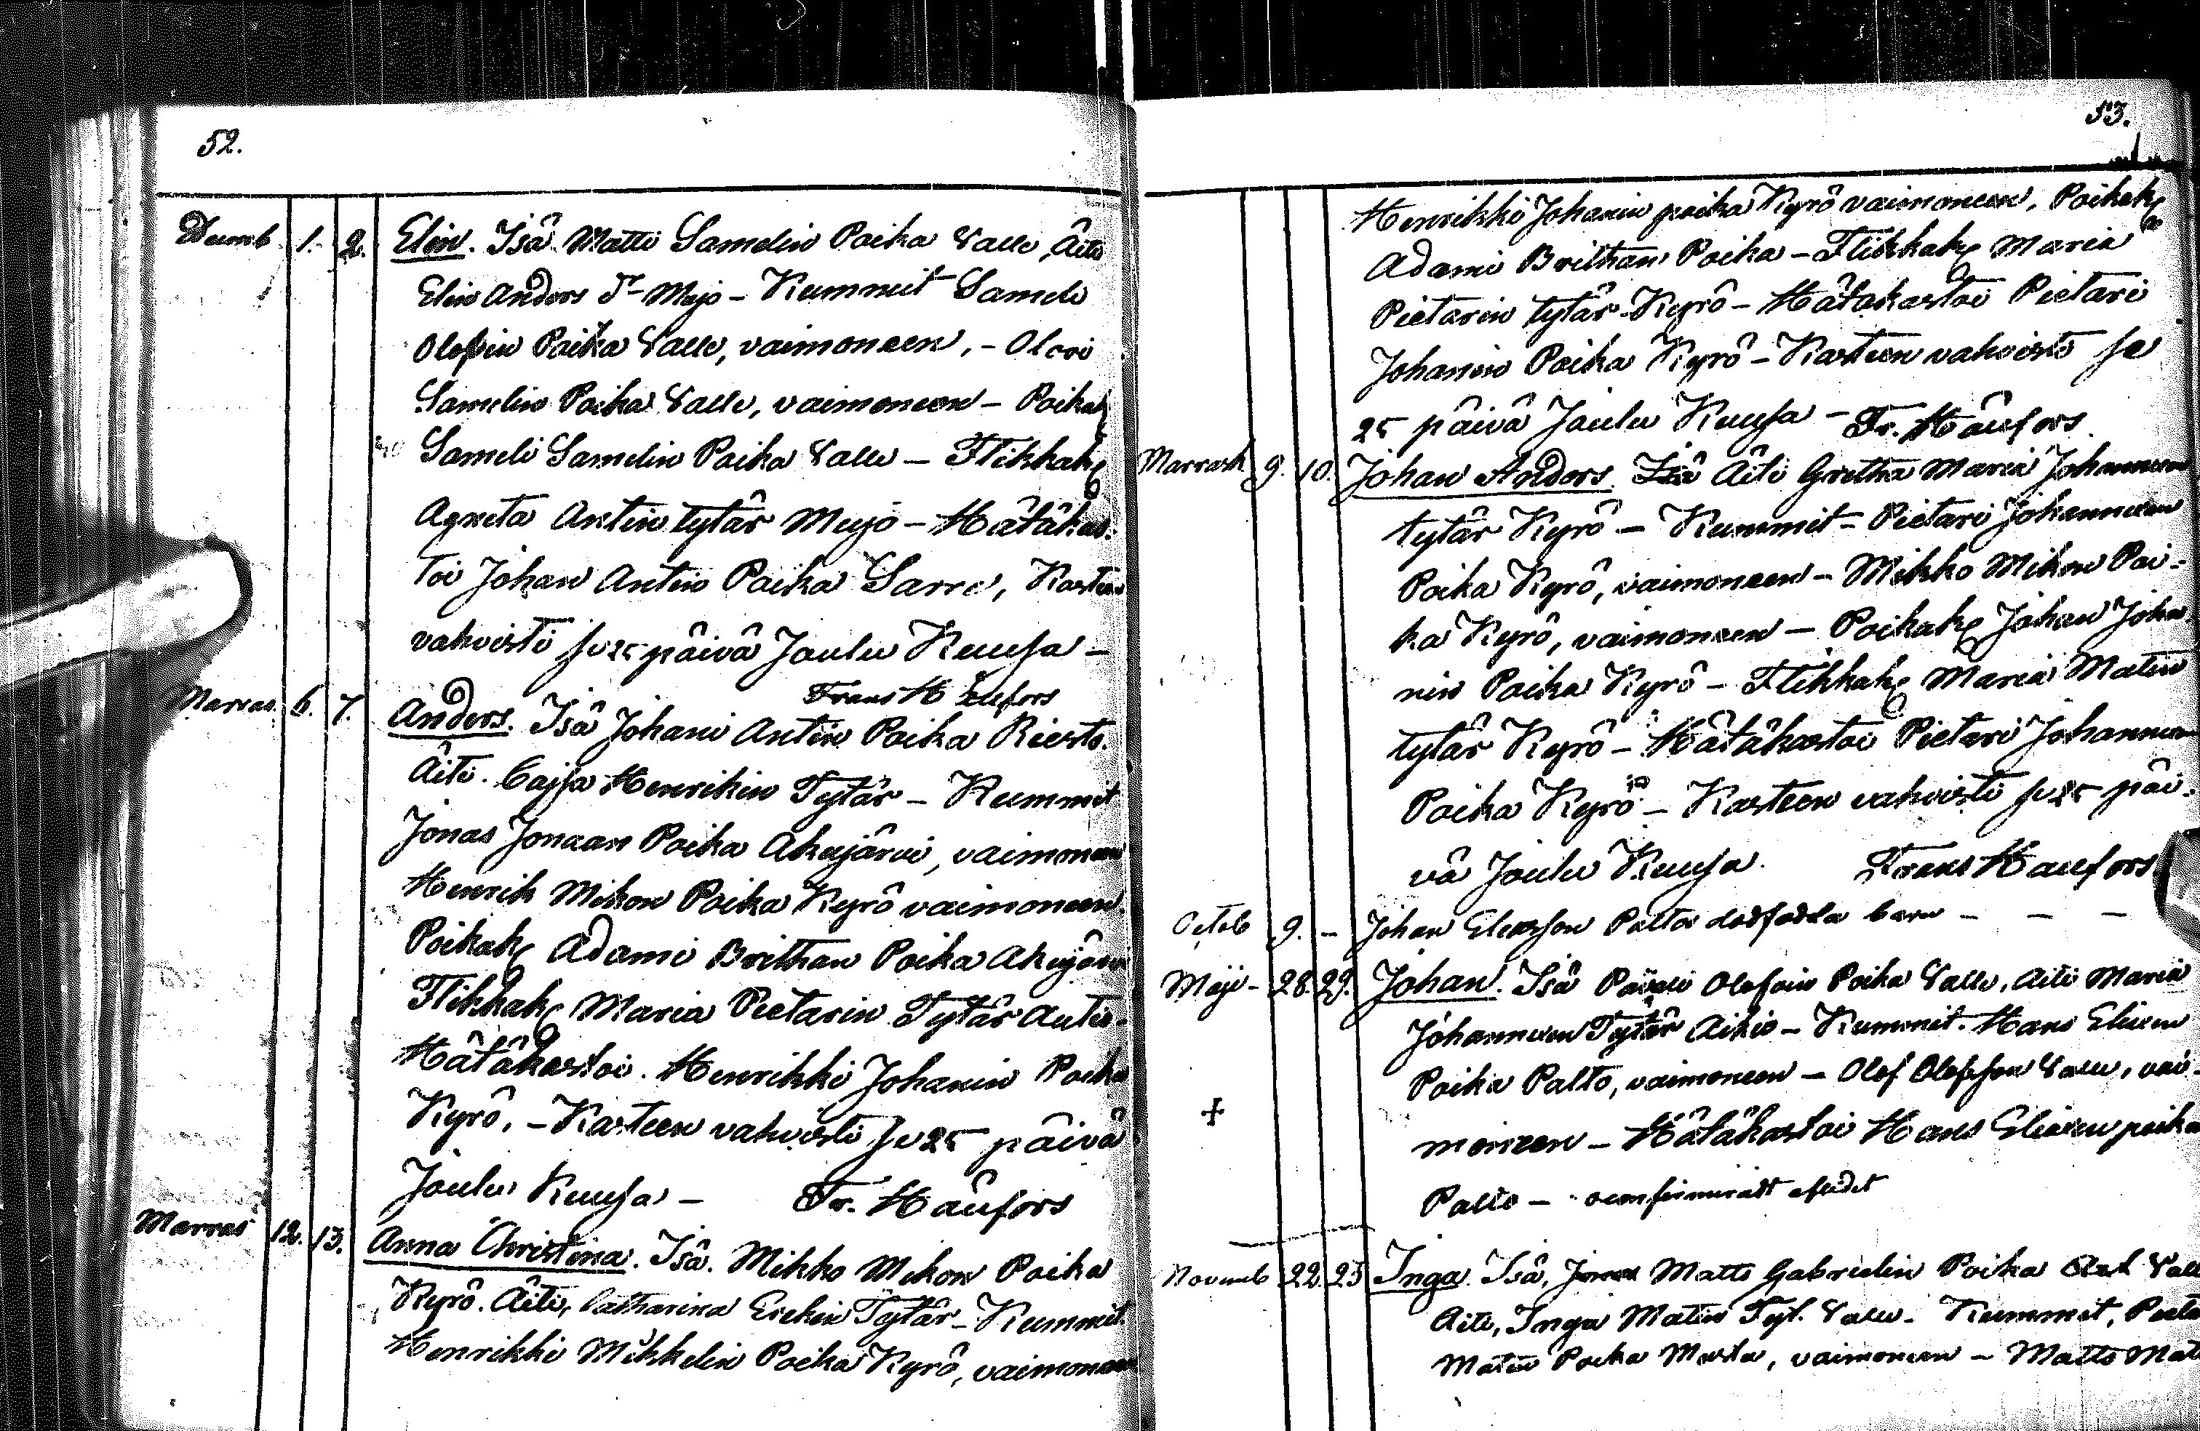 52.
Decemb 1. 2. Elin. Isâ Matti Samelin Poika Valle, Âiti
Elin Anders Dr Mujo – Kummit Sameli
Olofin Poika Valle, vaimoneen, – Olovi
Samelin Poika Valle, vaimoneen – Poikak
Sameli Samelin Poika Valle – Flikkak
Agneta Antin tytâr Mujo – Hâtâkas:
toi Johan Antin Poika Sarre, Kasteen
vahvisti se 25 pâivâ Joulu Kuusa –
Frans Hâufors
Marras. 6. 7. Anders. Isâ Johani Antin Poika Riesto.
Âiti. Cajsa Henrikin Tytâr – Kummit
Jonas Jonaan Poika Akujârvi, vaimoneen
Henrik Mikon Poika Kyrô vaimoneen.
Poikak Adami Brithan Poika Akujârvi
Flikkak Maria Pietarin Tytâr
Hâtâkastoi. Henrikki Johanin Poika
Kyrô. – Kasteen vahvisti se 25 pâivâ
Joulu Kuusa – Fr. Hâufors
Marras 12. 13. Anna Christina. Isâ. Mikko Mikon Poika
Kyrô. Âiti, Catharina Erekin Tytâr – Kummit.
Henrikki Mikkelin Poika Kyrô, vaimoneen
53.
Henrikki Johanin poika Kyrô vaimoneen, Poikak
Adami Brithan Poika – Flikkak Maria
Pietarin tytâr Kyrô – Hâtâkastoi Pietari
Johanin Poika Kyrô – Kasteen vahvisti se
25 pâivâ Joulu Kuusa – Fr. Hâufors.
Marrask 9. 10. Johan Anders. Isâ Âiti Gretha Maria Johanneen
tytâr Kyrô – Kummit – Pietari Johanneen
Poika Kyrô, vaimoneen – Mikko Mikon Poi-
ka Kyrô, vaimoneen – Poikak Johan Joha
nin Poika Kyrô – Flikkak Maria Matin
tytâr Kyrô – Hâtâkastoi Pietari Johanneen
Poika Kyrô – Kasteen vahvisti se 25 pâi-
vâ Joulu Kuusa. Frans Haufors
Octob 9. – Johan Palto dödfödda barn – – –
Maji – 28. 29. Johan. Isâ Olofin Poika Valle, Aiti Maria
Johanneen Tytâr Aikio – Kummit. Hans Eliaen
Poika Palto, vaimoneen – Olof Olofsson Valle, vai-
moneen – Hâtâkastoi Hans Eliaen poika
Palto –
Novemb 22. 23 Inga. Isâ, Matts Gabrielin Poika Valle
Aiti, Inga Matin Tyt. Valle – Kummit,
Matin Poika Musta, vaimoneen – Matts